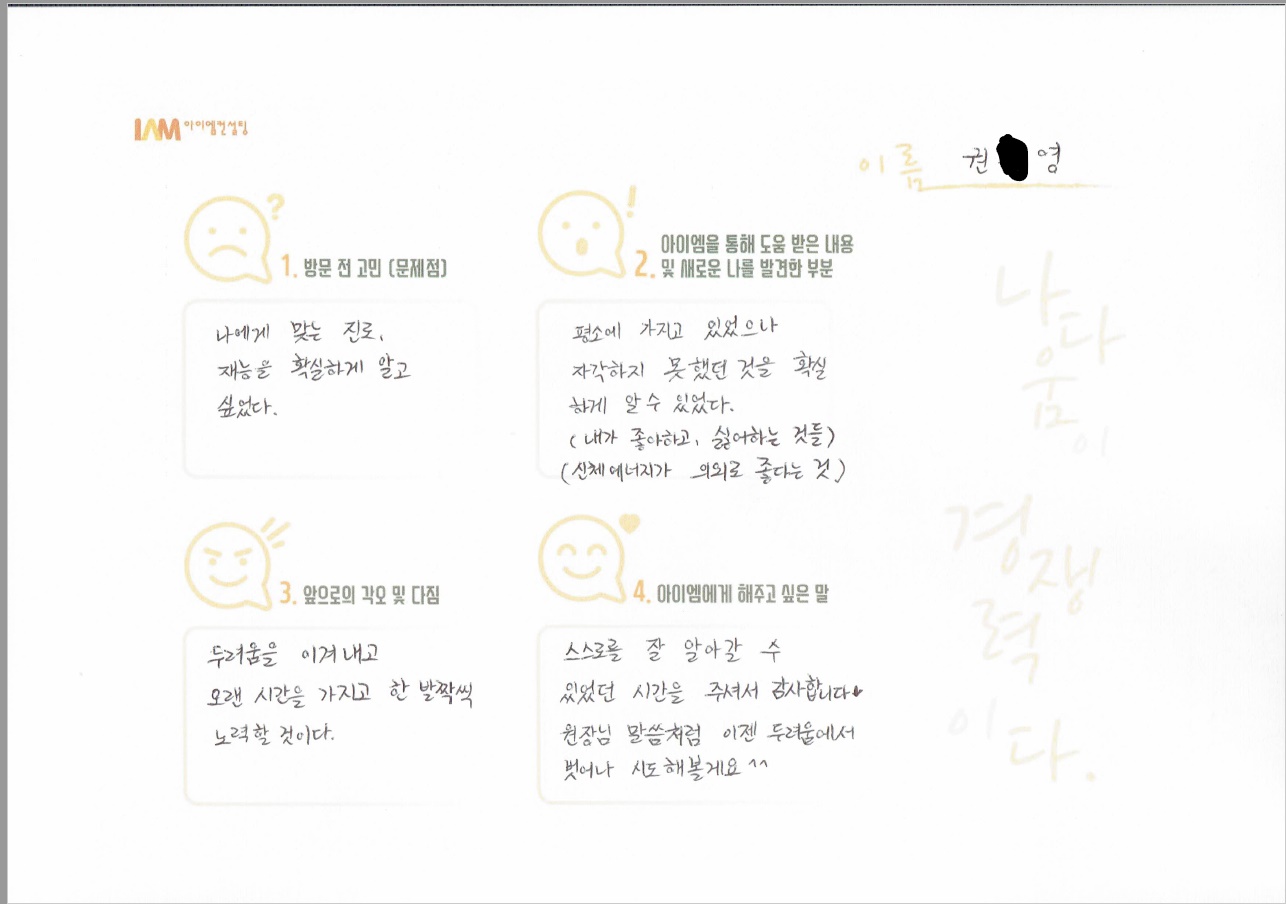 IAM 아이엠컨설팅
이름 권 영
1. 방문 전 고민 (문제점)
나에게 맞는 진로,
재능을 확실하게 알고
싶었다.
2. 아이엠을 통해 도움 받은 내용
및 새로운 나를 발견한 부분
평소에 가지고 있었으나
자각하지 못했던 것을 확실
하게 알 수 있었다.
(내가 좋아하고, 싫어하는 것들)
(신체에너지가 의외로 좋다는 것)
3. 앞으로의 각오 및 다짐
두려움을 이겨내고
오랜 시간을 가지고 한 발짝씩
노력할 것이다.
4. 아이엠에게 해주고 싶은 말
스스로를 잘 알아갈 수
있었던 시간을 주셔서 감사합니다♥
원장님 말씀처럼 이젠 두려움에서
벗어나 시도해볼게요^^
나다
움
이
경쟁
력
이다.